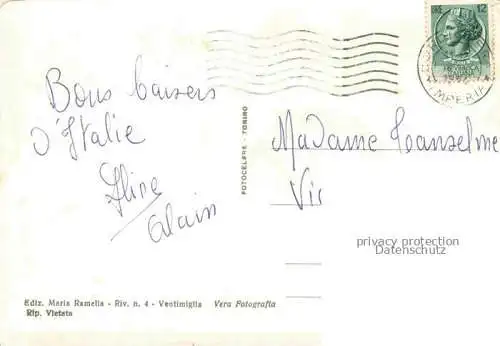 12
IMPERIA
Bons baisers
d'Italie
Aline
Alain
FOTOCELERE - TORINO
Madame Canselme
Vir
privacy protection
Datenschutz
Ediz. Maria Ramella - Riv. n. 4 - Ventimiglia Vera Fotografia
Rip. Vietata